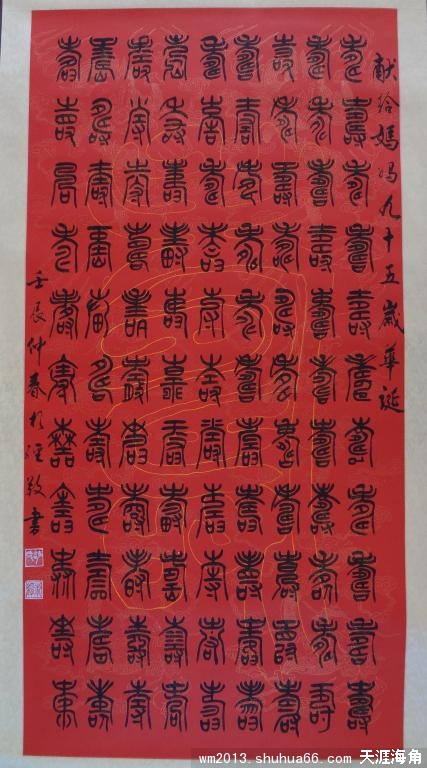 献给媽媽九十五歲華誕
壽壽壽壽壽壽壽壽壽壽壽
壽壽壽壽壽壽壽壽壽壽壽
壽壽壽壽壽壽壽壽壽壽壽
壽壽壽壽壽壽壽壽壽壽壽
壽壽壽壽壽壽壽壽壽壽壽
壽壽壽壽壽壽壽壽壽壽壽
壽壽壽壽壽壽壽壽壽壽壽
壽壽壽壽壽壽壽壽壽壽壽
壽壽壽壽壽壽壽壽壽壽壽
壬辰仲春於敬書
wm2013.shuhua66.com 天涯海角